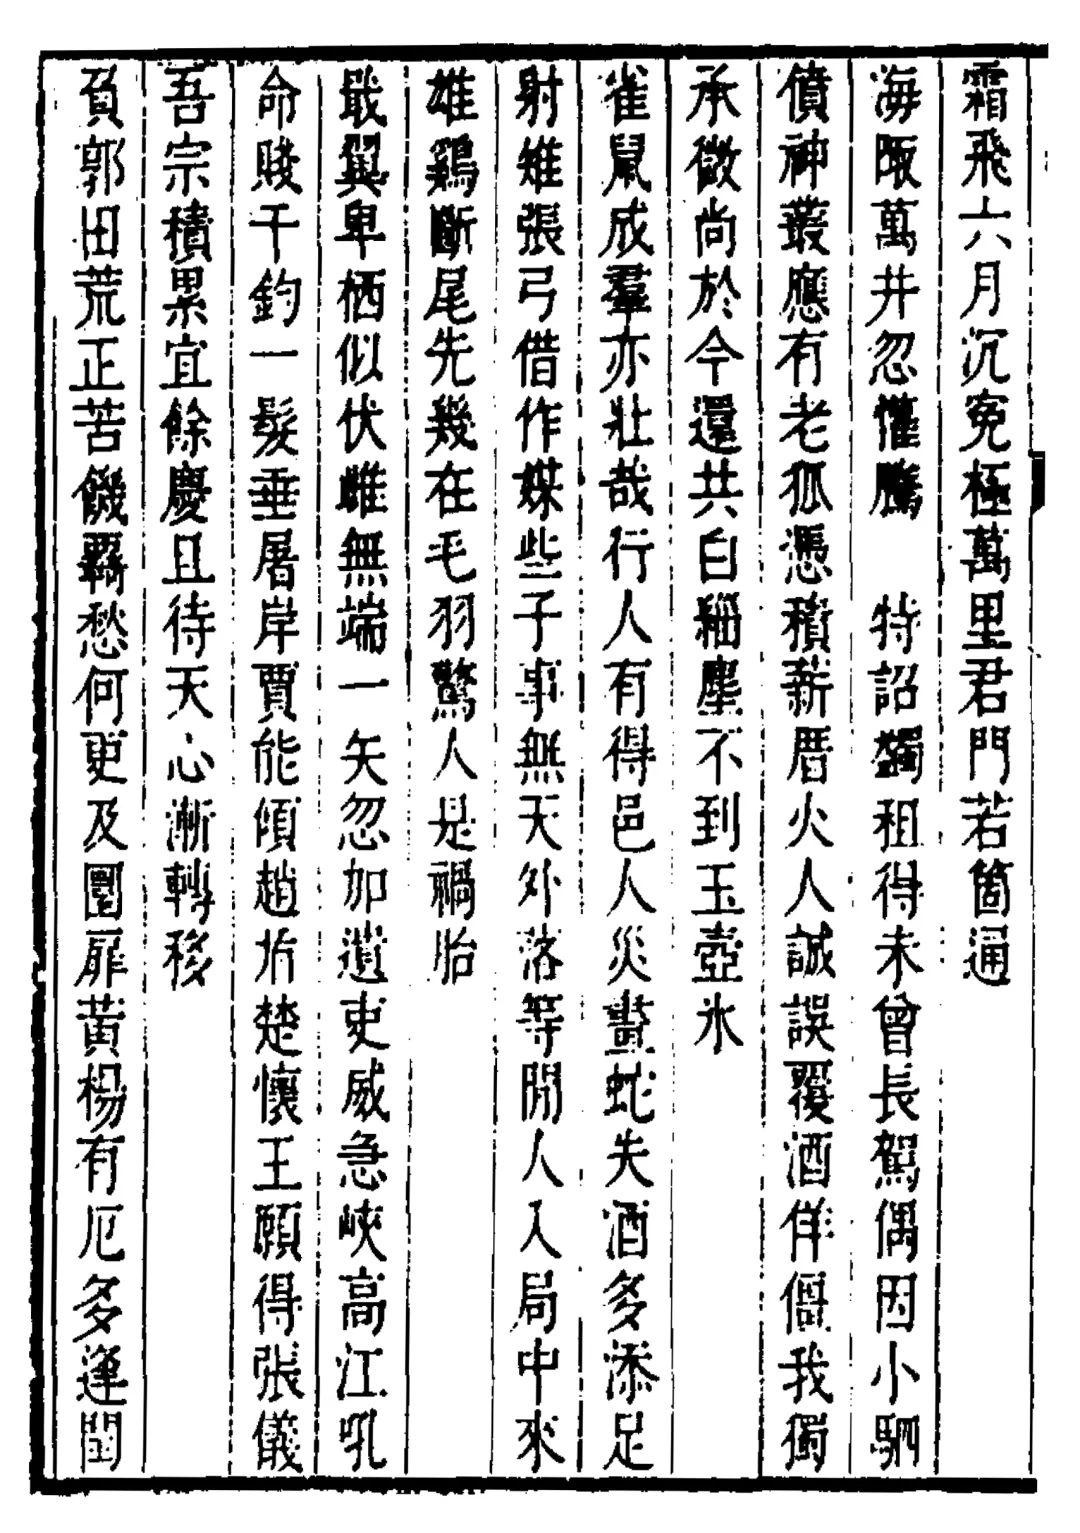 霜飛六月沉寃極萬里君門若箇通
海陬萬井忽懽騰　特詔蠲租得未曾長駕偶因小駟
僨神叢應有老狐憑積薪厝火人誠誤覆酒佯僵我獨
承微尚於今還共白緇塵不到玉壺氷
雀鼠成羣亦壯哉行人有得邑人災畫蛇失酒多添足
射雉張弓借作媒些子事無天外落等閒人入局中來
雄鷄斷尾先幾在毛羽驚人是禍胎
戢翼卑栖似伏雌無端一矢忽加遺吏威急峽高江吼
命賤千鈞一髮垂屠岸賈能傾趙朔楚懷王願得張儀
吾宗積累宜餘慶且待天心漸轉移
負郭田荒正苦饑羇愁何更及圜扉黃楊有厄多逢閏